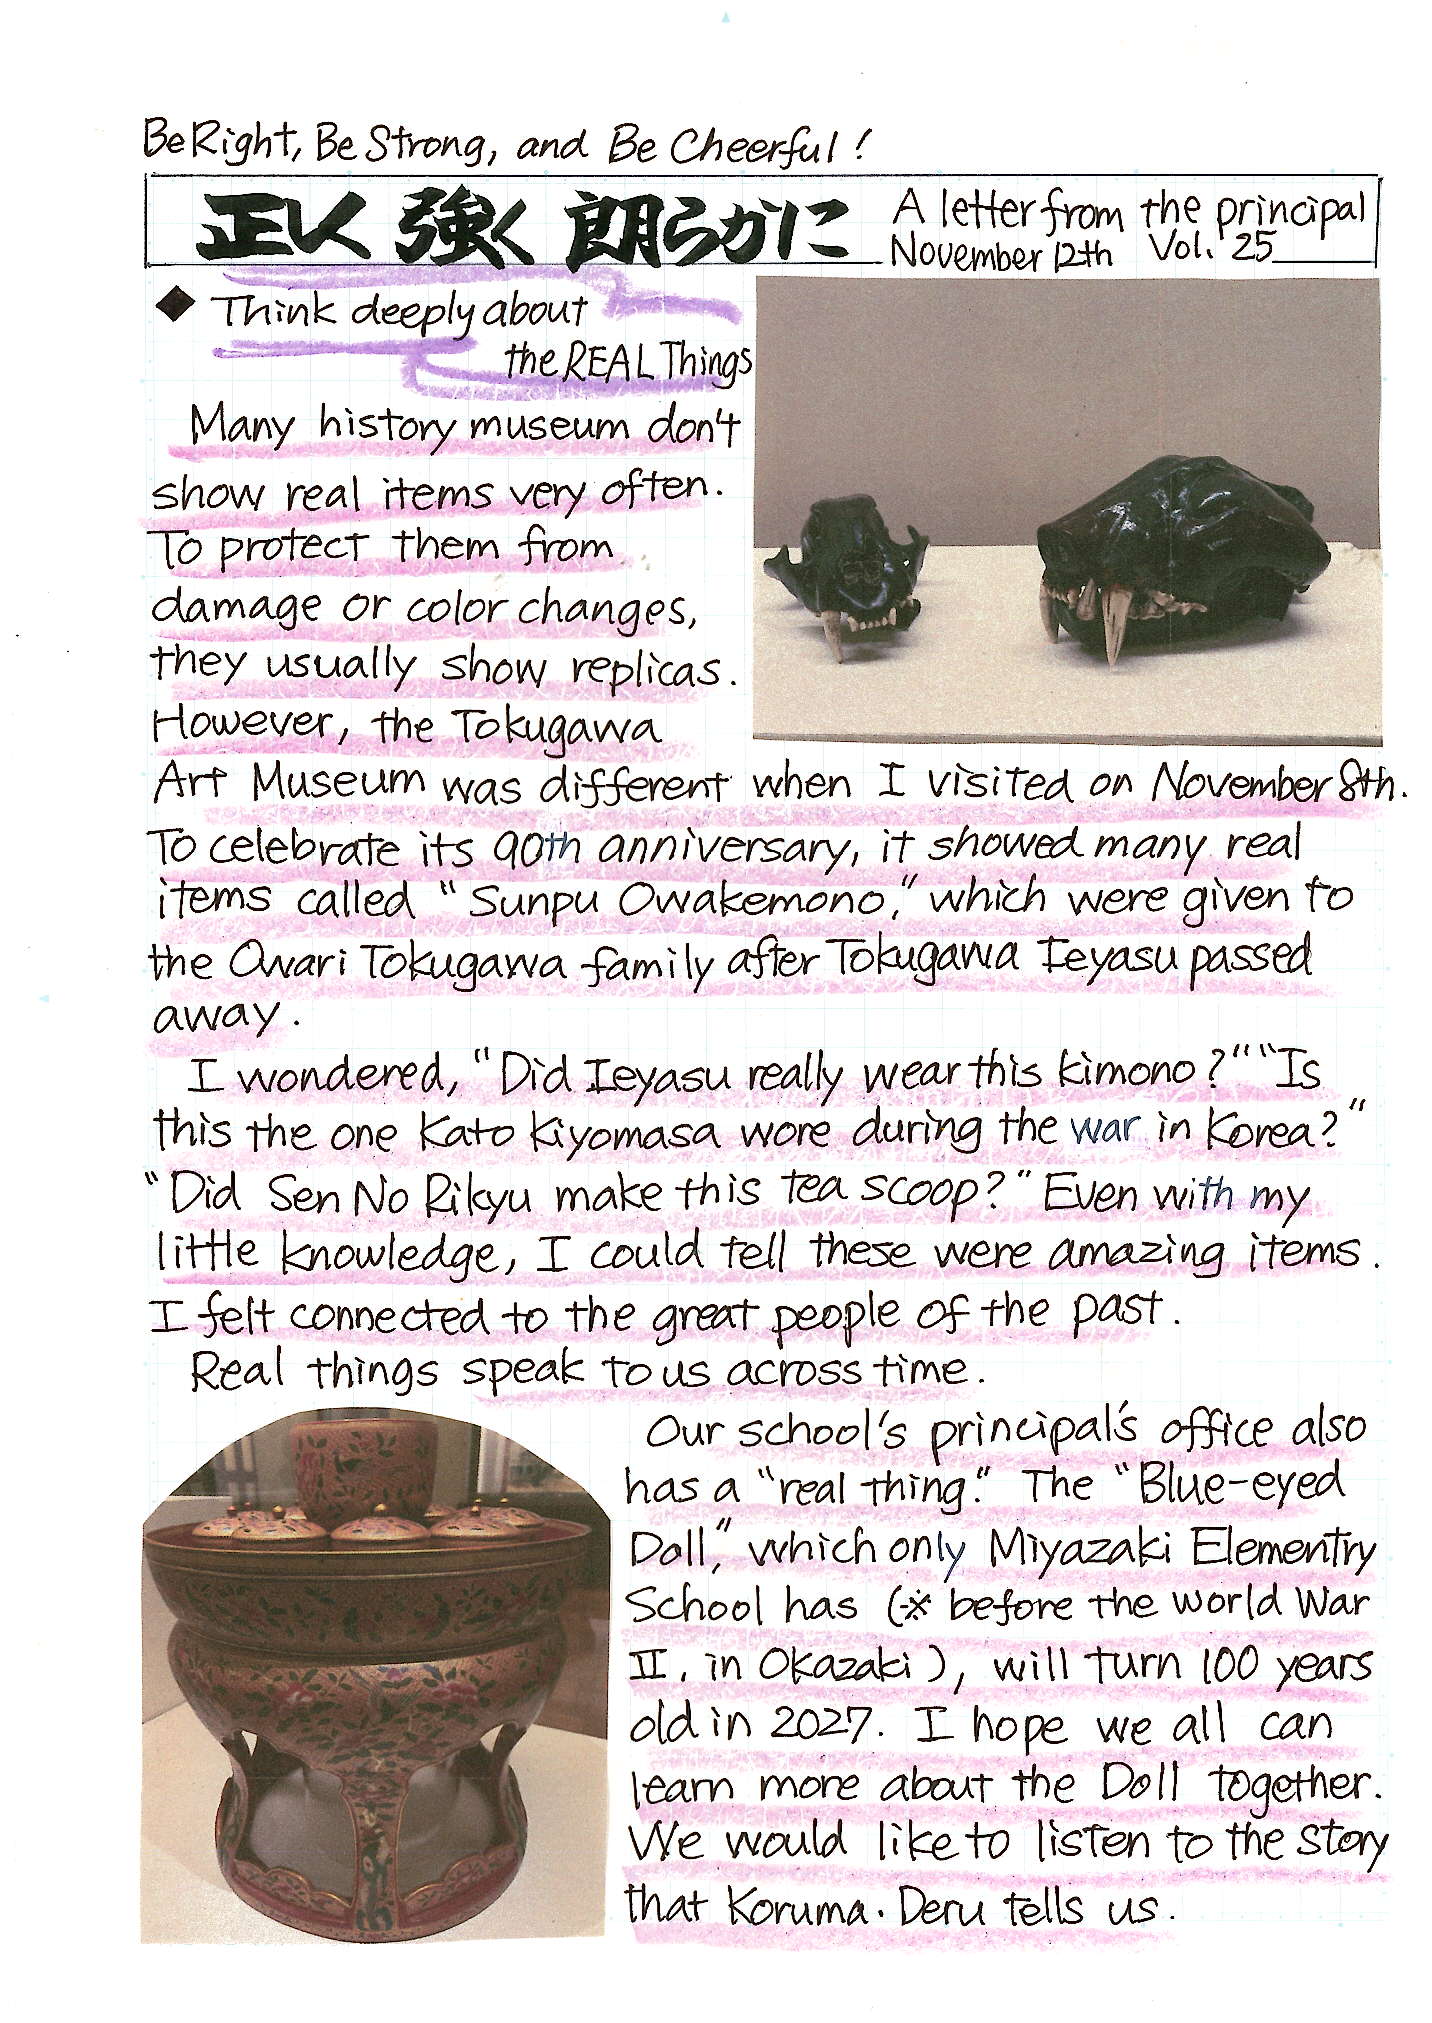 Be Right, Be Strong, and Be Cheerful!
正しく 強く 朗らかに
A letter from the principal
November 12th Vol. 25
◆ Think deeply about
the REAL Things
Many history museum don't
show real items very often.
To protect them from
damage or color changes,
they usually show replicas.
However, the Tokugawa
Art Museum was different when I visited on November 8th.
To celebrate its 90th anniversary, it showed many real
items called "Sunpu Owakemono," which were given to
the Owari Tokugawa family after Tokugawa Ieyasu passed
away.
I wondered, "Did Ieyasu really wear this kimono?" "Is
this the one Kato Kiyomasa wore during the war in Korea?"
"Did Sen No Rikyu make this tea scoop?" Even with my
little knowledge, I could tell these were amazing items.
I felt connected to the great people of the past.
Real things speak to us across time.
Our school's principal's office also
has a "real thing." The "Blue-eyed
Doll," which only Miyazaki Elementry
School has (※ before the world War
II, in Okazaki), will turn 100 years
old in 2027. I hope we all can
learn more about the Doll together.
We would like to listen to the story
that Koruma・Deru tells us.